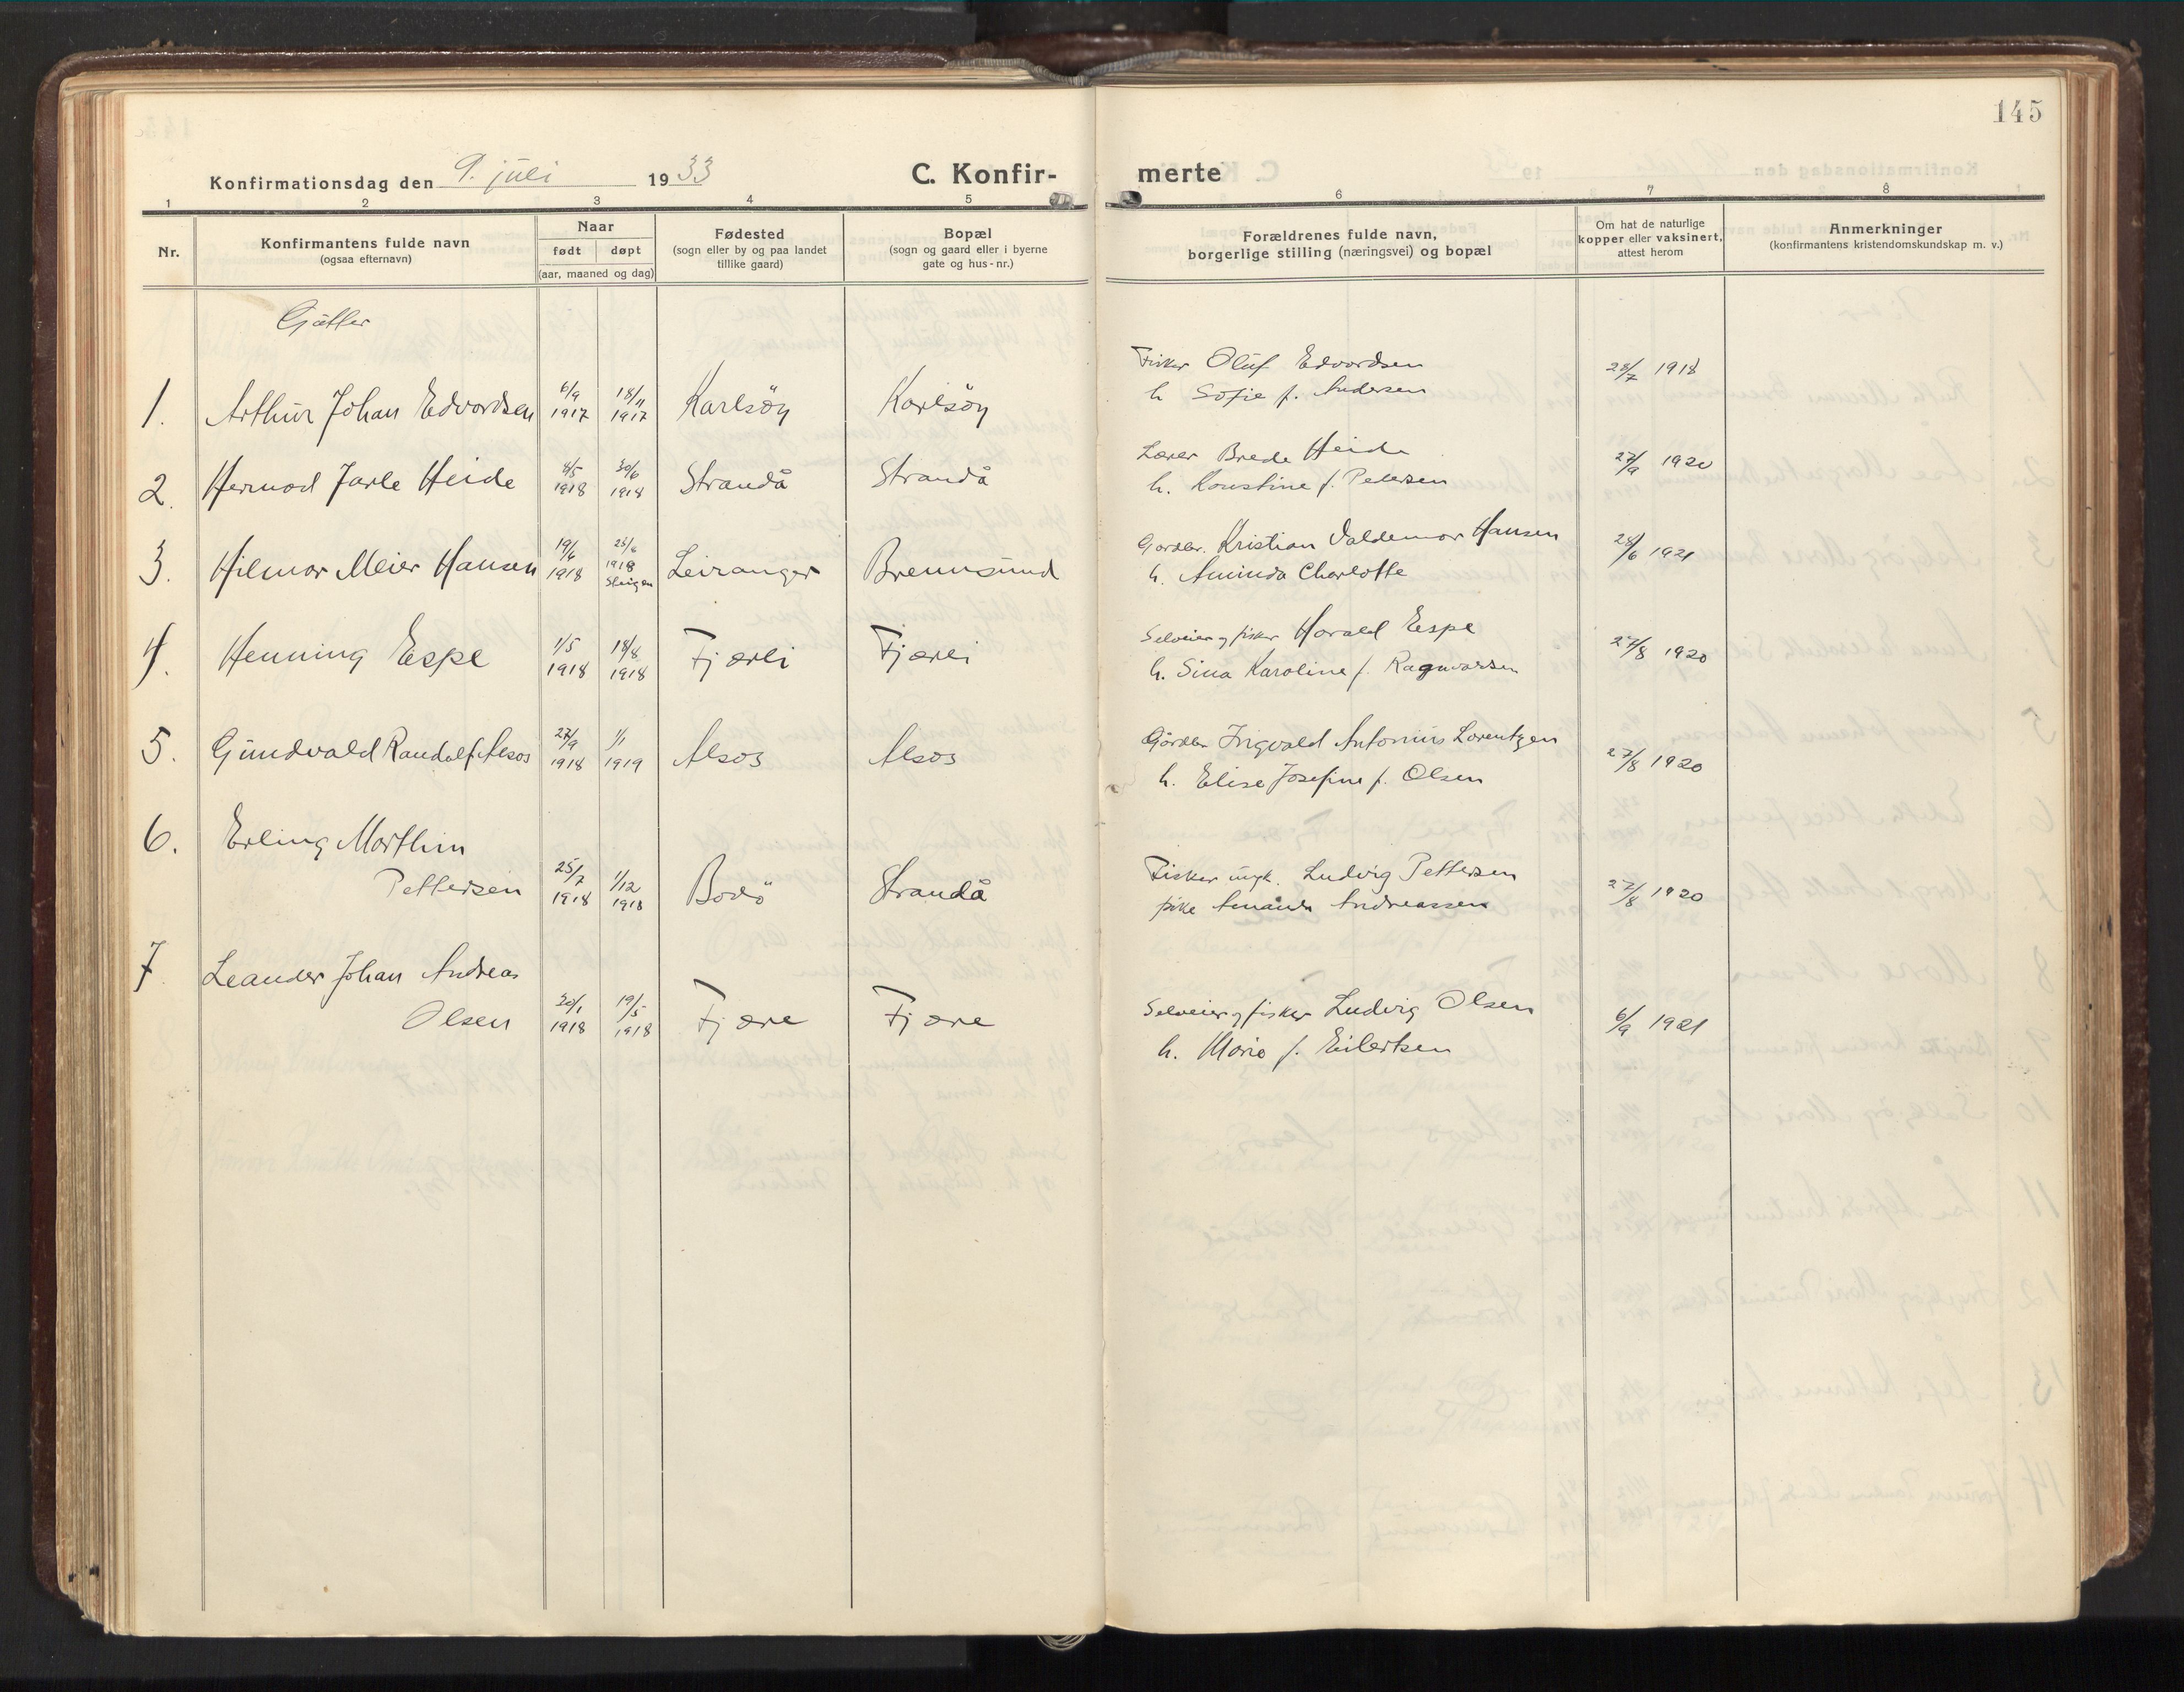 145
Konfirmationsdag den 9. juli 1933
C. Konfir-
merte
1 2 3 4 5 6 7 8
Nr.
Konfirmantens fulde navn
(ogsaa efternavn)
Naar
født døpt
(aar, maaned og dag)
Fødested
(sogn eller by og paa landet
tillike gaard)
Bopæl
(sogn og gaard eller i byerne
gate og hus-nr.)
Forældrenes fulde navn,
borgerlige stilling (næringsvei) og bopæl
Om hat de naturlige
kopper eller vaksinert,
attest herom
Anmerkninger
(konfirmantens kristendomskundskap m. v.)
Gutter
1. Arthur Johan Edvardsen 6/9 1917 18/11 1917 Karlsöy Karlsöy
Fisker Oluf Edvardsen
h. Sofie f. Andersen
28/7 1918
2. Hermod Jarle Heide 4/5 1918 30/6 1918 Strandå Strandå
Lærer Brede Heide
h. Konstine f. Petersen
27/9 1920
3. Hilmar Meier Hansen 19/6 1918 1918 Steigen Leiranger Brennsund
Gardbr. Kristian Valdemar Hansen
h. Aminda Charlotte
28/6 1921
4. Henning Espe 1/5 1918 18/8 1918 Fjærli Fjærli
Selveier og fisker Harald Espe
h. Sina Karoline f. Ragnvardsen
27/8 1920
5. Gundvald Randolf Alsos 27/9 1918 1/1 1919 Alsos Alsos
Gårdbr Ingvald Antonius Lorentzen
h. Elise Josefine f. Olsen
27/8 1920
6. Erling Marthin
Pettersen 25/7 1918 1/12 1918 Bodö Strandå
Fisker ungk. Ludvig Pettersen
pike Amanda Andreassen
27/8 1920
7. Leander Johan Andreas
Olsen 30/1 1918 19/5 1918 Fjære Fjære
Selveier og fisker Ludvig Olsen
h. Marie f. Eilertsen
6/9 1921